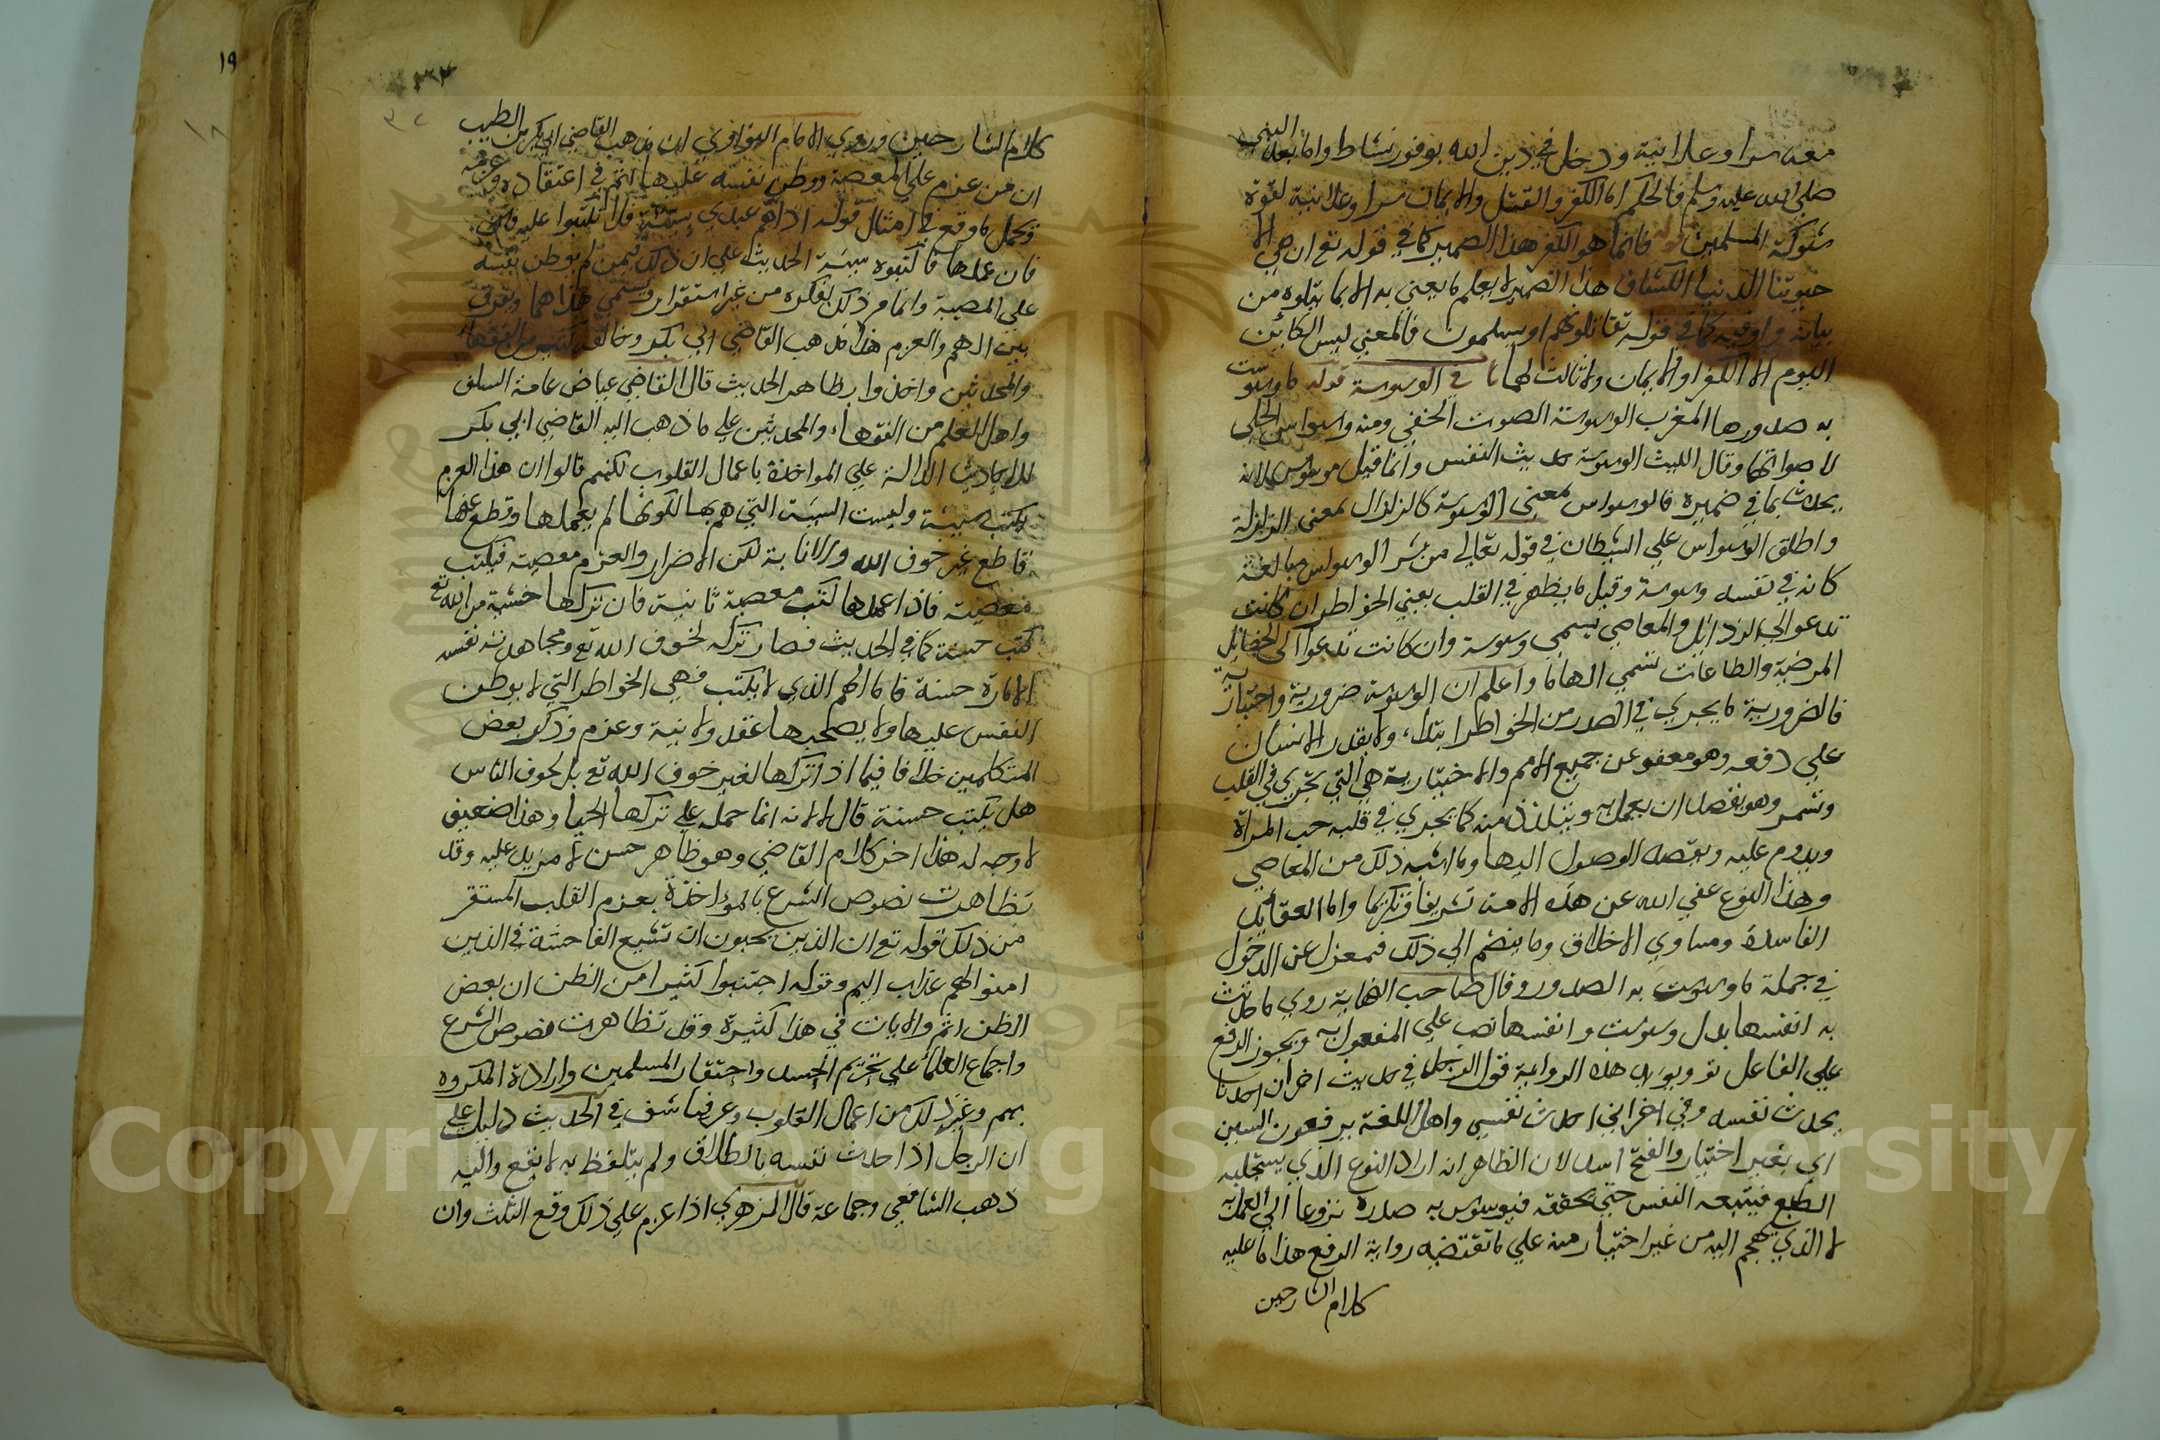 معه سرا وعلانية ودخل في دين الله بوفور نشاط واما بعد النبي
صلى الله عليه وسلم فالحكم اما الكفر والقتل والايمان سرا وعلانية لقوة
شوكة المسلمين قوله فانما هو الكفر هذا الضمير كما في قوله تع ان هي الا
حيوتنا الدنيا الكشاف هذا الضمير لا يعلم ما يعني به الا بما يتلوه من
بيانه واو فيه كما في قوله تقاتلونهم او يسلمون فالمعنى ليس الكائن
اليوم الا الكفر او الايمان ولا ثالث لهما في الوسوسة قوله ما وسوست
به صدورها المغرب الوسوسة الصوت الخفي ومنه وسواس الحلي
لاصواتها وقال الليث الوسوسة حديث النفس وانما قيل موسوس لانه
يحدث بما في ضميره فالوسواس معنى الوسوسة كالزلزال بمعنى الزلزلة
واطلق الوسواس على الشيطان في قوله تعالى من شر الوسواس مبالغة
كانه في نفسه وسوسة وقيل ما يظهر في القلب يعني الخواطر ان كانت
تدعو الى الرذائل والمعاصي يسمى وسوسة وان كانت تدعوا الى الخصائل
المرضية والطاعات تسمى الهاما واعلم ان الوسوسة ضرورية واختيارية
فالضرورية ما يجري في الصدر من الخواطر ابتداء ولا يقدر الانسان
على دفعه وهو معفو عن جميع الامم والاختيارية هي التي تجري في القلب
وتستمر وهو يقصد ان يعمل به ويتلذذ منه كما يجري في قلبه حب المراة
ويدوم عليه ويقصد الوصول اليها وما اشبه ذلك من المعاصي
وهذا النوع عفى الله عن هذه الامة تشريفا وتكريما واما العقائد
الفاسدة ومساوي الاخلاق وما ينضم الى ذلك فبمعزل عن الدخول
في جملة ما وسوست به الصدور وقال صاحب النهاية روي ما حدثت
به انفسها بدل وسوست وانفسها نصب على المفعول به ويجوز الرفع
على الفاعل تو ويؤيد هذه الرواية قول الرجل في حديث اخر ان احدنا
يحدث نفسه وفي اخر اني احدث نفسي واهل اللغة يرفعون السين
اي بغير اختيار والفتح اسد لان الظاهر انه اراد النوع الذي يستجلبه
الطبع فيتبعه النفس حتى تحققه فيوسوس به صدره نزوعا الى العمل به
لا الذي يهجم اليه من غير اختيار منه على ما تقتضيه رواية الرفع هذا ما عليه
كلام الشارحين
كلام الشارحين وروي الامام النواوي ان مذهب القاضي ابي بكر بن الطيب
ان من عزم على المعصية ووطن نفسه عليها اثم في اعتقاده وعزمه
وتحمل ما وقع في امثال قوله اذا هم عبدي بسيئة فلا تكتبوا عليه فان
فان عملها فاكتبوه سيئة الحديث على ان ذلك فيمن لم يوطن نفسه
على المعصية وانما مر ذلك بفكره من غير استقرار ويسمى هذا هما ويفرق
بين الهم والعزم هذا مذهب القاضي ابي بكر وخالفه كثير من الفقهاء
والمحدثين واخذوا بظاهر الحديث قال القاضي عياض عامة السلف
واهل العلم من الفقهاء والمحدثين على ما ذهب اليه القاضي ابي بكر
للاحاديث الدالة على المواخذة باعمال القلوب لكنهم قالوا ان هذا العزم
يكتب سيئة وليست السيئة التي هم بها لكونها لم يعملها وقطع عنها
قاطع غير خوف الله والانابة لكن الاضرار والعزم معصية فيكتب
معصية فاذا عملها كتب معصية ثانية فان تركها خشية من الله تع
كتب حسنة كما في الحديث فصار تركه لخوف الله تع ومجاهدته نفسه
الامارة حسنة فاما الهم الذي لا يكتب فهي الخواطر التي لا يوطن
النفس عليها ولا يصحبها عقد ولا نية وعزم وذكر بعض
المتكلمين خلافا فيما اذا تركها لغير خوف الله تع بل لخوف الناس
هل يكتب حسنة قال لا لانه انما حمله على تركها الحيا وهذا ضعيف
لا وجه له هذا اخر كلام القاضي وهو ظاهر حسن لا مزيد عليه وقد
تظاهرت نصوص الشرع بالمؤاخذة بعزم القلب المستقر
من ذلك قوله تع ان الذين يحبون ان تشيع الفاحشة في الذين
امنوا لهم عذاب اليم وقوله اجتنبوا كثيرا من الظن ان بعض
الظن اثم والايات في هذا كثيرة وقد تظاهرت نصوص الشرع
واجماع العلماء على تحريم الحسد واحتقار المسلمين وارادة المكروه
بهم وغير ذلك من اعمال القلوب وعرفها شف في الحديث دليل على
ان الرجل اذا حدث نفسه بالطلاق ولم يتلفظ به لا يقع واليه
ذهب الشافعي وجماعة قال الزهري اذا عزم على ذلك وقع الثلث وان
١٩
Copyright © King Saud University